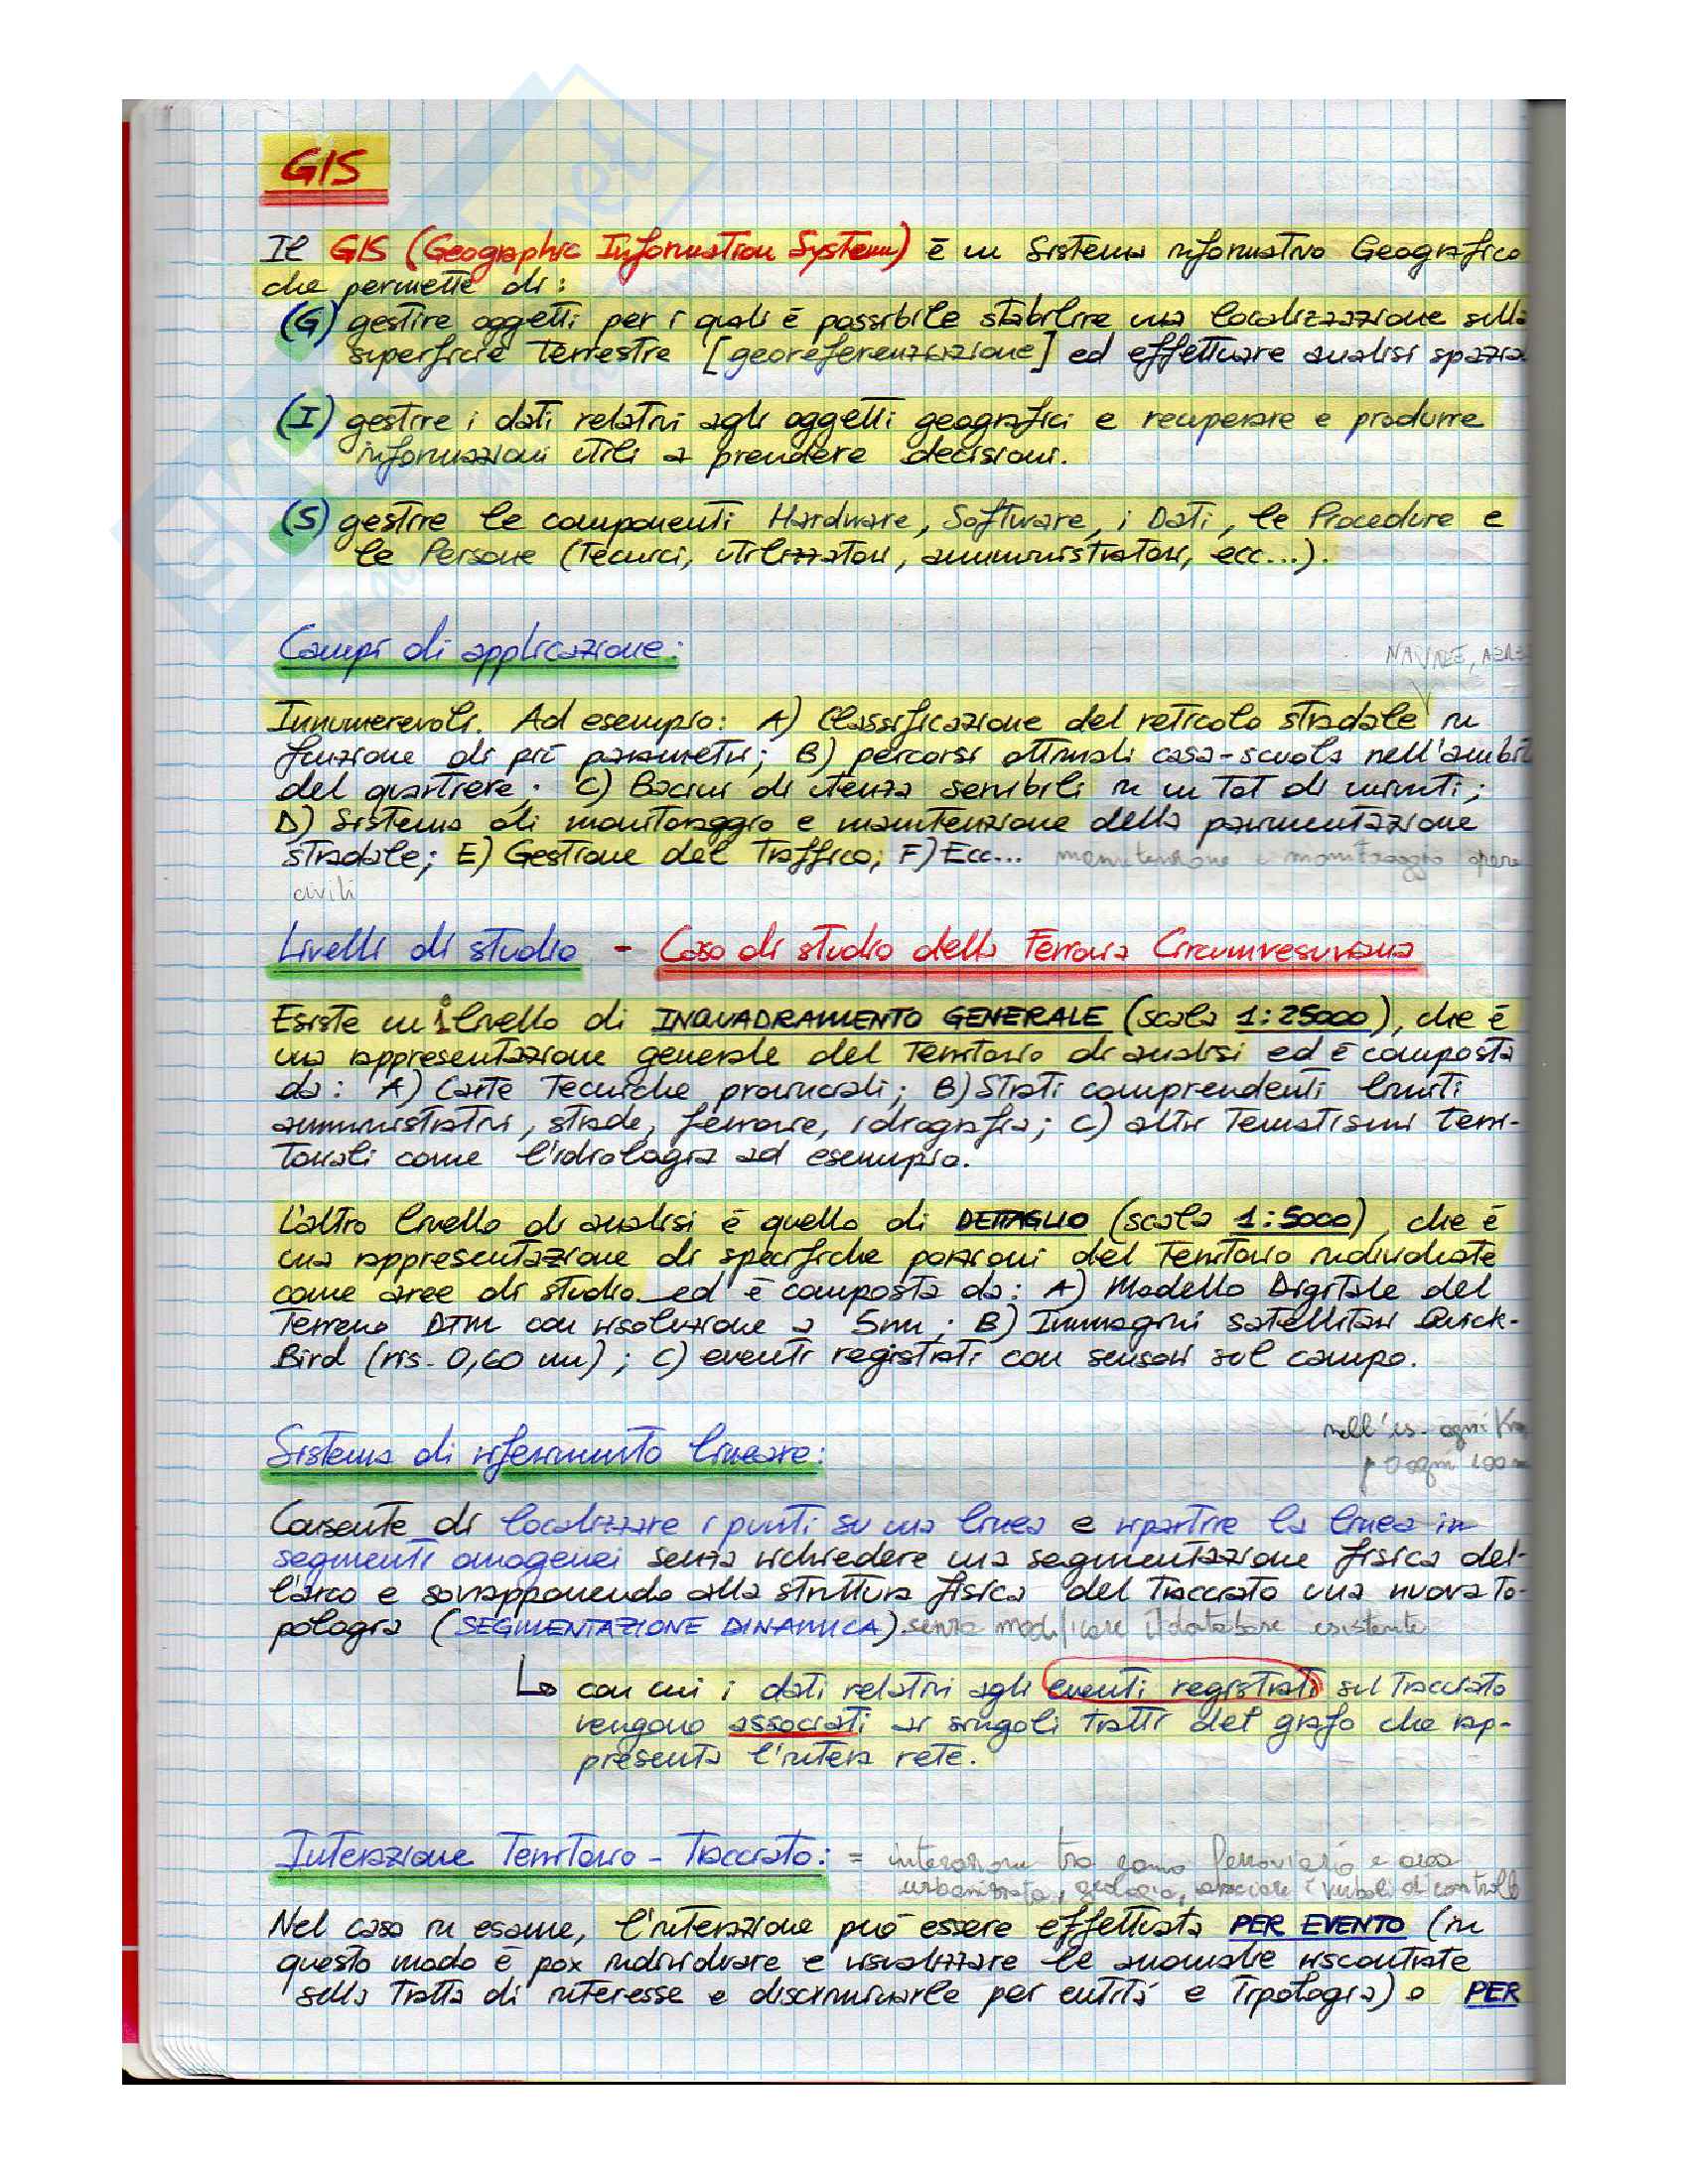 GIS
Il GIS (Geographic Information System) è un Sistema informativo Geografico
che permette di:
(G) gestire oggetti per i quali è possibile stabilire una localizzazione sulla
superficie terrestre [georeferenziazione] ed effettuare analisi spazia
(I) gestire i dati relativi agli oggetti geografici e recuperare e produrre
informazioni utili a prendere decisioni.
(S) gestire le componenti Hardware, Software, i Dati, le Procedure e
le Persone (tecnici, utilizzatori, amministratori, ecc...).
Campi di applicazione:
NAVALE, AEREO
Innumerevoli. Ad esempio: A) Classificazione del reticolo stradale in
funzione di più parametri; B) percorsi ottimali casa-scuola nell'ambit
del quartiere; C) Bacini di utenza sensibili in un tot di minuti;
D) Sistema di monitoraggio e manutenzione della pavimentazione
stradale; E) Gestione del traffico; F) Ecc... manutenzione e monitoraggio opere
civili
Livelli di studio - Caso di studio della Ferrovia Circumvesuviana
Esiste un livello di INQUADRAMENTO GENERALE (scala 1:25000), che è
una rappresentazione generale del territorio di analisi ed è composta
da: A) Carte tecniche provinciali; B) Strati comprendenti limiti
amministrativi, strade, ferrovie, idrografia; C) altri tematismi terri-
toriali come l'idrologia ad esempio.
L'altro livello di analisi è quello di DETTAGLIO (scala 1:5000), che è
una rappresentazione di specifiche porzioni del territorio individuate
come aree di studio ed è composta da: A) Modello Digitale del
Terreno DTM con risoluzione a 5m; B) Immagini satellitari Quick-
Bird (ris. 0,60 m); C) eventi registrati con sensori sul campo.
nell'es. ogni Km
ogni 100 m
Sistema di riferimento lineare:
Consente di localizzare i punti su una linea e ripartire la linea in
segmenti omogenei senza richiedere una segmentazione fisica del-
l'arco e sovrapponendo alla struttura fisica del tracciato una nuova to-
pologia (SEGMENTAZIONE DINAMICA) senza modificare il database esistente
↳ con cui i dati relativi agli eventi registrati sul tracciato
vengono associati ai singoli tratti del grafo che rap-
presenta l'intera rete.
Interazione Territorio - Tracciato: = interazione tra ferroviario e area
urbanizzata, geologia, associare i vincoli di controllo
Nel caso in esame, l'interazione può essere effettuata PER EVENTO (in
questo modo è pox individuare e visualizzare le anomalie riscontrate
sulla tratta di interesse e discriminarle per entità e tipologia) o PER